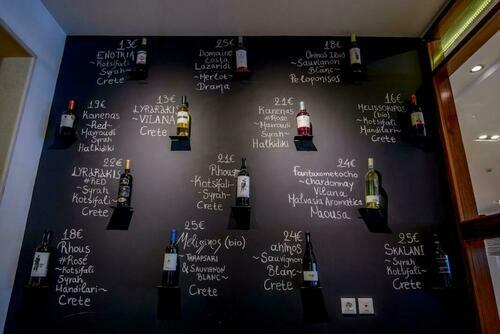 13€
ENOTRIA
~Kotsifali
Syrah~
Crete
25€
Domaine
Costa
Lazaridi
~Merlot~
Drama
18€
~Sauvignon
Blanc~
Peloponisos
19€
Kanenas
~Red~
Mavroudi
Syrah~
Halkidiki
13€
LYRARAKIS~
VILANA
Crete
21€
Kanenas
#Rosé
~Mavroudi
Syrah~
Halkidiki
16€
(bio)
~Kotsifali
Mandilari~
Crete
22€
LYRARAKIS
#RED
Syrah
Kotsifali~
Crete
21€
Rhous
~Kotsifali
~Syrah~
Crete
24€
Fantaxometocho
~chardonnay
Vilana
Malvasia Aromatica
18€
Rhous
#Rosé
~Kotsifali
Syrah
Mandilari~
Crete
25€
(bio)
~
& SAUVIGNON
BLANC~
Crete
24€
~Sauvignon
Blanc~
Crete
25€
SKALANI
~Syrah
Kotsifali~
Crete